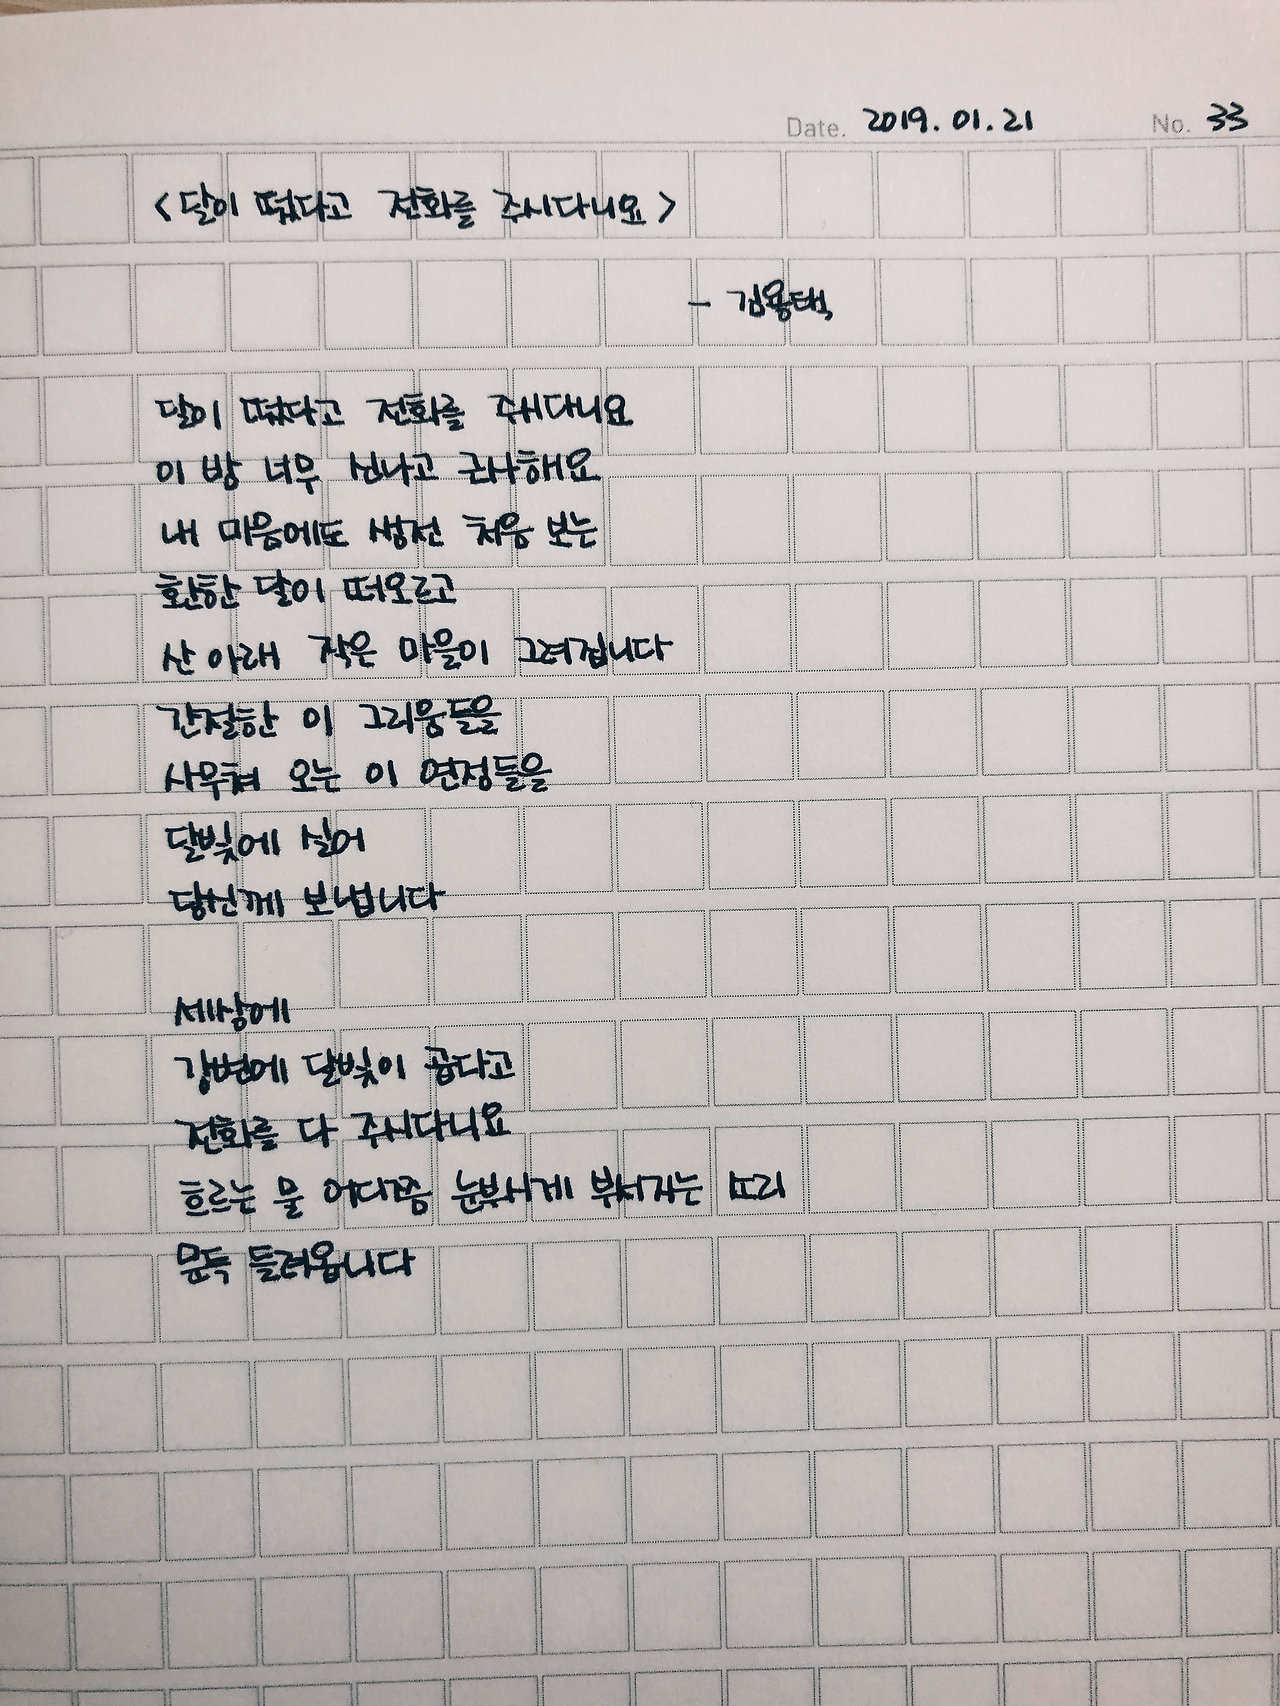 Date. 2019.01.21 No. 33
<달이 떴다고 전화를 주시다니요>
- 김용택
달이 떴다고 전화를 주시다니요
이 밤 너무 신나고 근사해요
내 마음에도 생전 처음 보는
환한 달이 떠오르고
산 아래 작은 마을이 그려집니다
간절한 이 그리움들을
사무쳐 오는 이 연정들을
달빛에 실어
당신께 보냅니다
세상에
강변에 달빛이 곱다고
전화를 다 주시다니요
흐르는 물 어디쯤 눈부시게 부서지는 소리
문득 들려옵니다